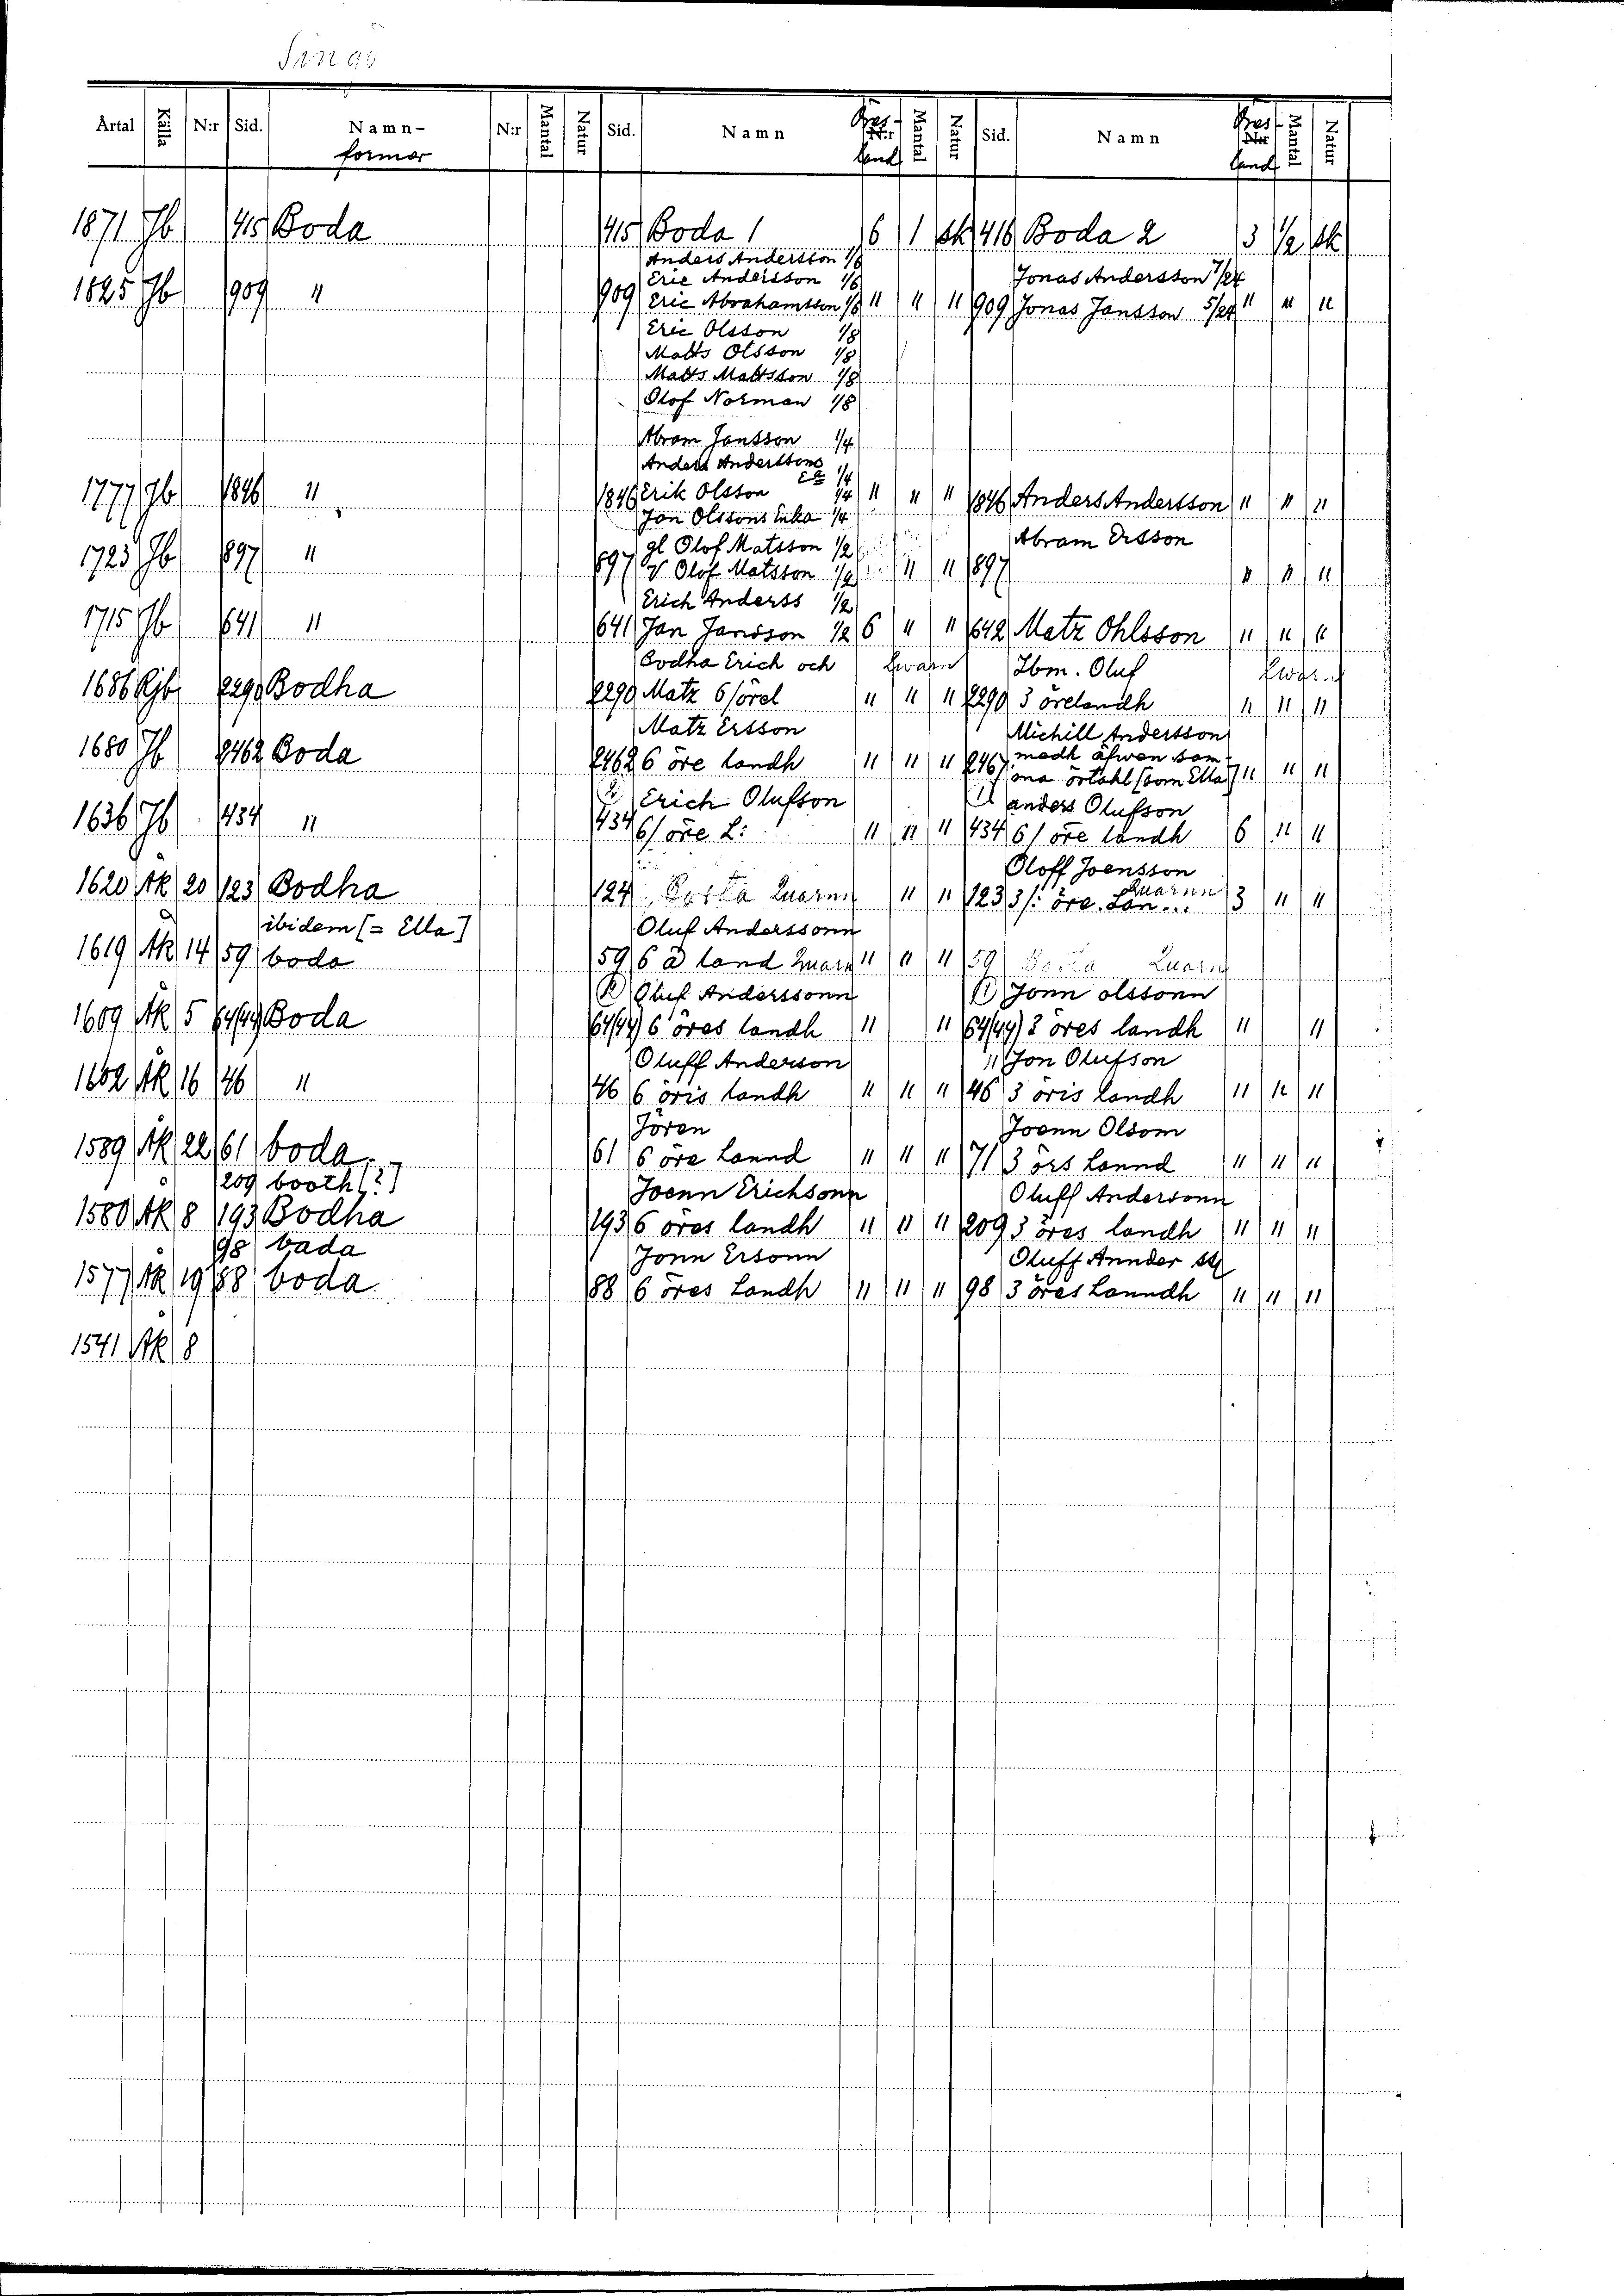 Singö
Årtal Källa N:r Sid. Namn- N:r Mantal Natur Sid. Namn Öres- Mantal Natur Sid. Namn Öres- Mantal Natur
former land land
1871 Jb 415 Boda 415 Boda 1 6 1 sk 416 Boda 2 3 1/2 sk
Anders Andersson 1/8
Eric Andersson 1/8 Jonas Andersson 7/24
1825 Jb 909 " 909 Eric Abrahamsson 1/8 " " " 909 Jonas Jansson 5/24 " " "
Eric Olsson 1/8
Matts Olsson 1/8
Matts Mattsson 1/8
Olof Norman 1/8
Abram Jansson 1/4
Anders Anderssons
Ea 1/4
1777 Jb 1846 " 1846 Erik Olsson 1/4 " " " 1846 Anders Andersson " " "
Jan Olssons Enka 1/4
gl Olof Matsson 1/2 Abram Ersson
1723 Jb 897 " 897 V Olof Matsson 1/2 " " 897 " " "
Erich Anderss 1/2
1715 Jb 641 " 641 Jan Jansson 1/2 6 " " 642 Matz Ohlsson " " "
Bodha Erich och Ibm. Oluf
1686 Rjb 2290 Bodha 2290 Matz 6/örel " " " 2290 3 örelandh " " "
Matz Ersson Michill Andersson
1680 Jb 2462 Boda 2462 6 öre landh " " " 2467 medh äfwen som
ma örtahl [som Ella] " " "
Erich Olufson anders Olufson
1636 Jb 434 " 434 6/ öre L: " " " 434 6/ öre landh 6 " "
Oloff Joensson
1620 Äk 20 123 Bodha 124 Quarnn " " 123 3/: öre Quarnn 3 " "
ibidem [= Ella] Oluf Anderssonn
1619 Äk 14 59 boda 59 6 land Quarn " " " 59 Quarn
Oluf Anderssonn Jonn olssonn
1609 Äk 5 64/49 Boda 64/49 6 öres landh " " 64/49 3 öres landh " "
Oluff Anderson " Jon Olufson
1602 Äk 16 46 " 46 6 öris landh " " " 46 3 öris landh " " "
Jören Joenn Olsom
1589 Äk 22 61 boda 61 6 öre Lannd " " " 71 3 örs Lannd " " "
209 booth [?] Joenn Erichsonn Oluff Andersonn
1580 Äk 8 193 Bodha 193 6 öres landh " " " 209 3 öres landh " " "
98 bada Jonn Ersonn Oluff Annder
1577 Äk 19 88 boda 88 6 öres Landh " " " 98 3 öres Lanndh " " "
1541 Äk 8